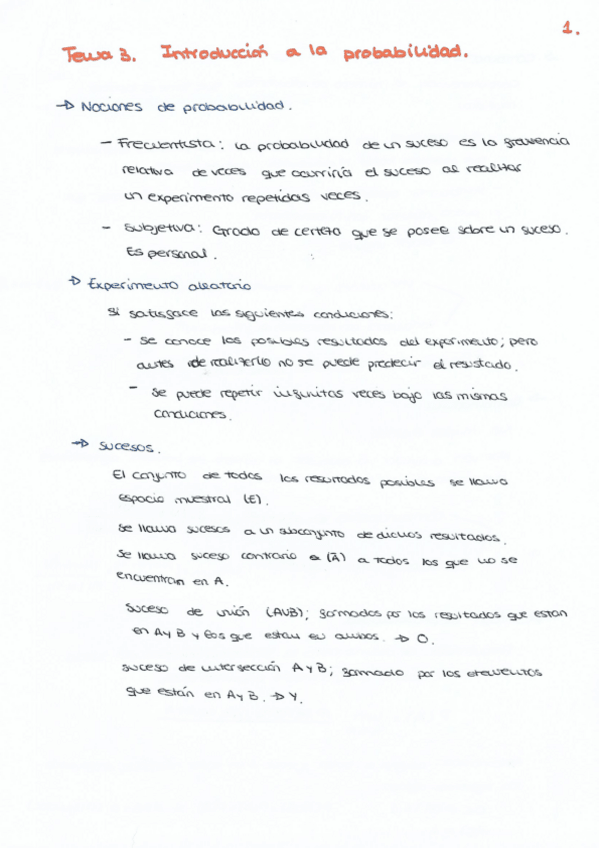 1.
Tema 3. Introducción a la probabilidad.
→ Nociones de probabilidad.
- Frecuentista: la probabilidad de un suceso es la frecuencia
relativa de veces que ocurriría el suceso al realizar
un experimento repetidas veces.
- Subjetiva: Grado de certeza que se posee sobre un suceso.
Es personal.
→ Experimento aleatorio
Si satisface las siguientes condiciones:
- se conoce los posibles resultados del experimento; pero
antes de realizarlo no se puede predecir el resultado.
- Se puede repetir infinitas veces bajo las mismas
condiciones.
→ sucesos.
El conjunto de todos los resultados posibles se llama
espacio muestral (E).
Se llama sucesos a un subconjunto de dichos resultados.
Se llama suceso contrario a (Ā) a todos los que no se
encuentran en A.
Suceso de unión (AUB); formados por los resultados que estan
en A y B y los que estan en ambos. → O.
suceso de intersección A y B; formado por los elementos
que están en A y B. → Y.